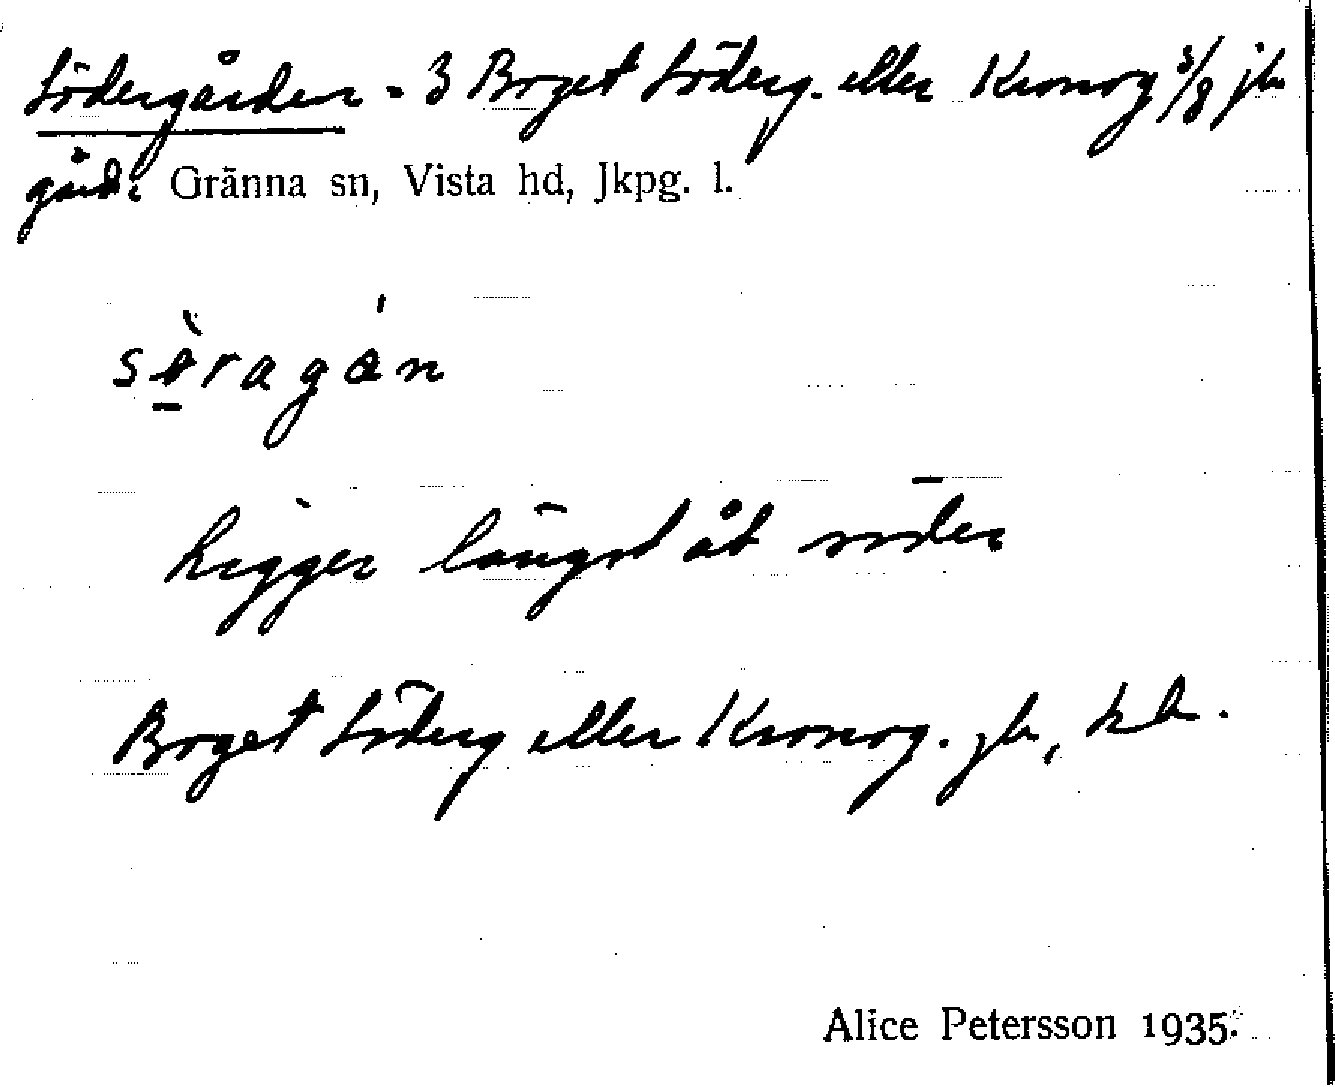 Södergården = 3 Boget Söderg. eller Kronog 3/8 jb
gård. Gränna sn, Vista hd, Jkpg. l.
sèragán
Ligger längst åt söder
Boget Söderg eller Kronog. jb,
Alice Petersson 1935.